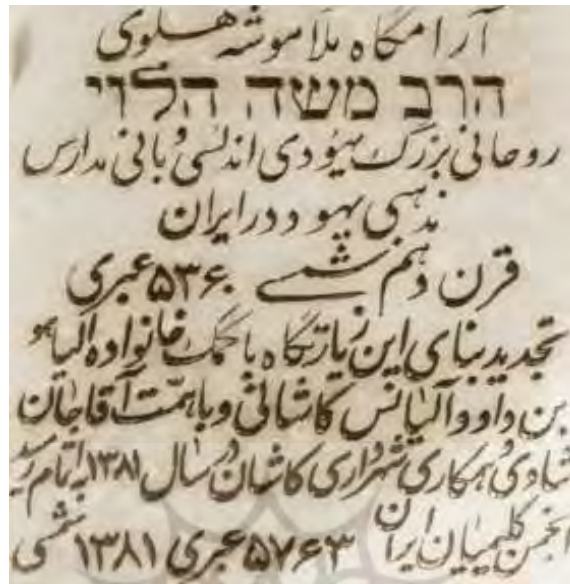 آرامگاه ملا موشه هلوی
הרב משה הלוי
روحانی بزرگ یهودی اندلسی و بانی مدارس
مذهبی یهود در ایران
قرن دهم شمسی ۵۳۶۰ عبری
تجدید بنای این زیارتگاه با کمک خانواده الیاهو
بن داود و آلیانس کاشانی و با همت آقاجان
شادی و همکاری شهرداری کاشان در سال ۱۳۸۱ به اتمام رسید
انجمن کلیمیان ایران ۵۷۶۳ عبری ۱۳۸۱ شمسی